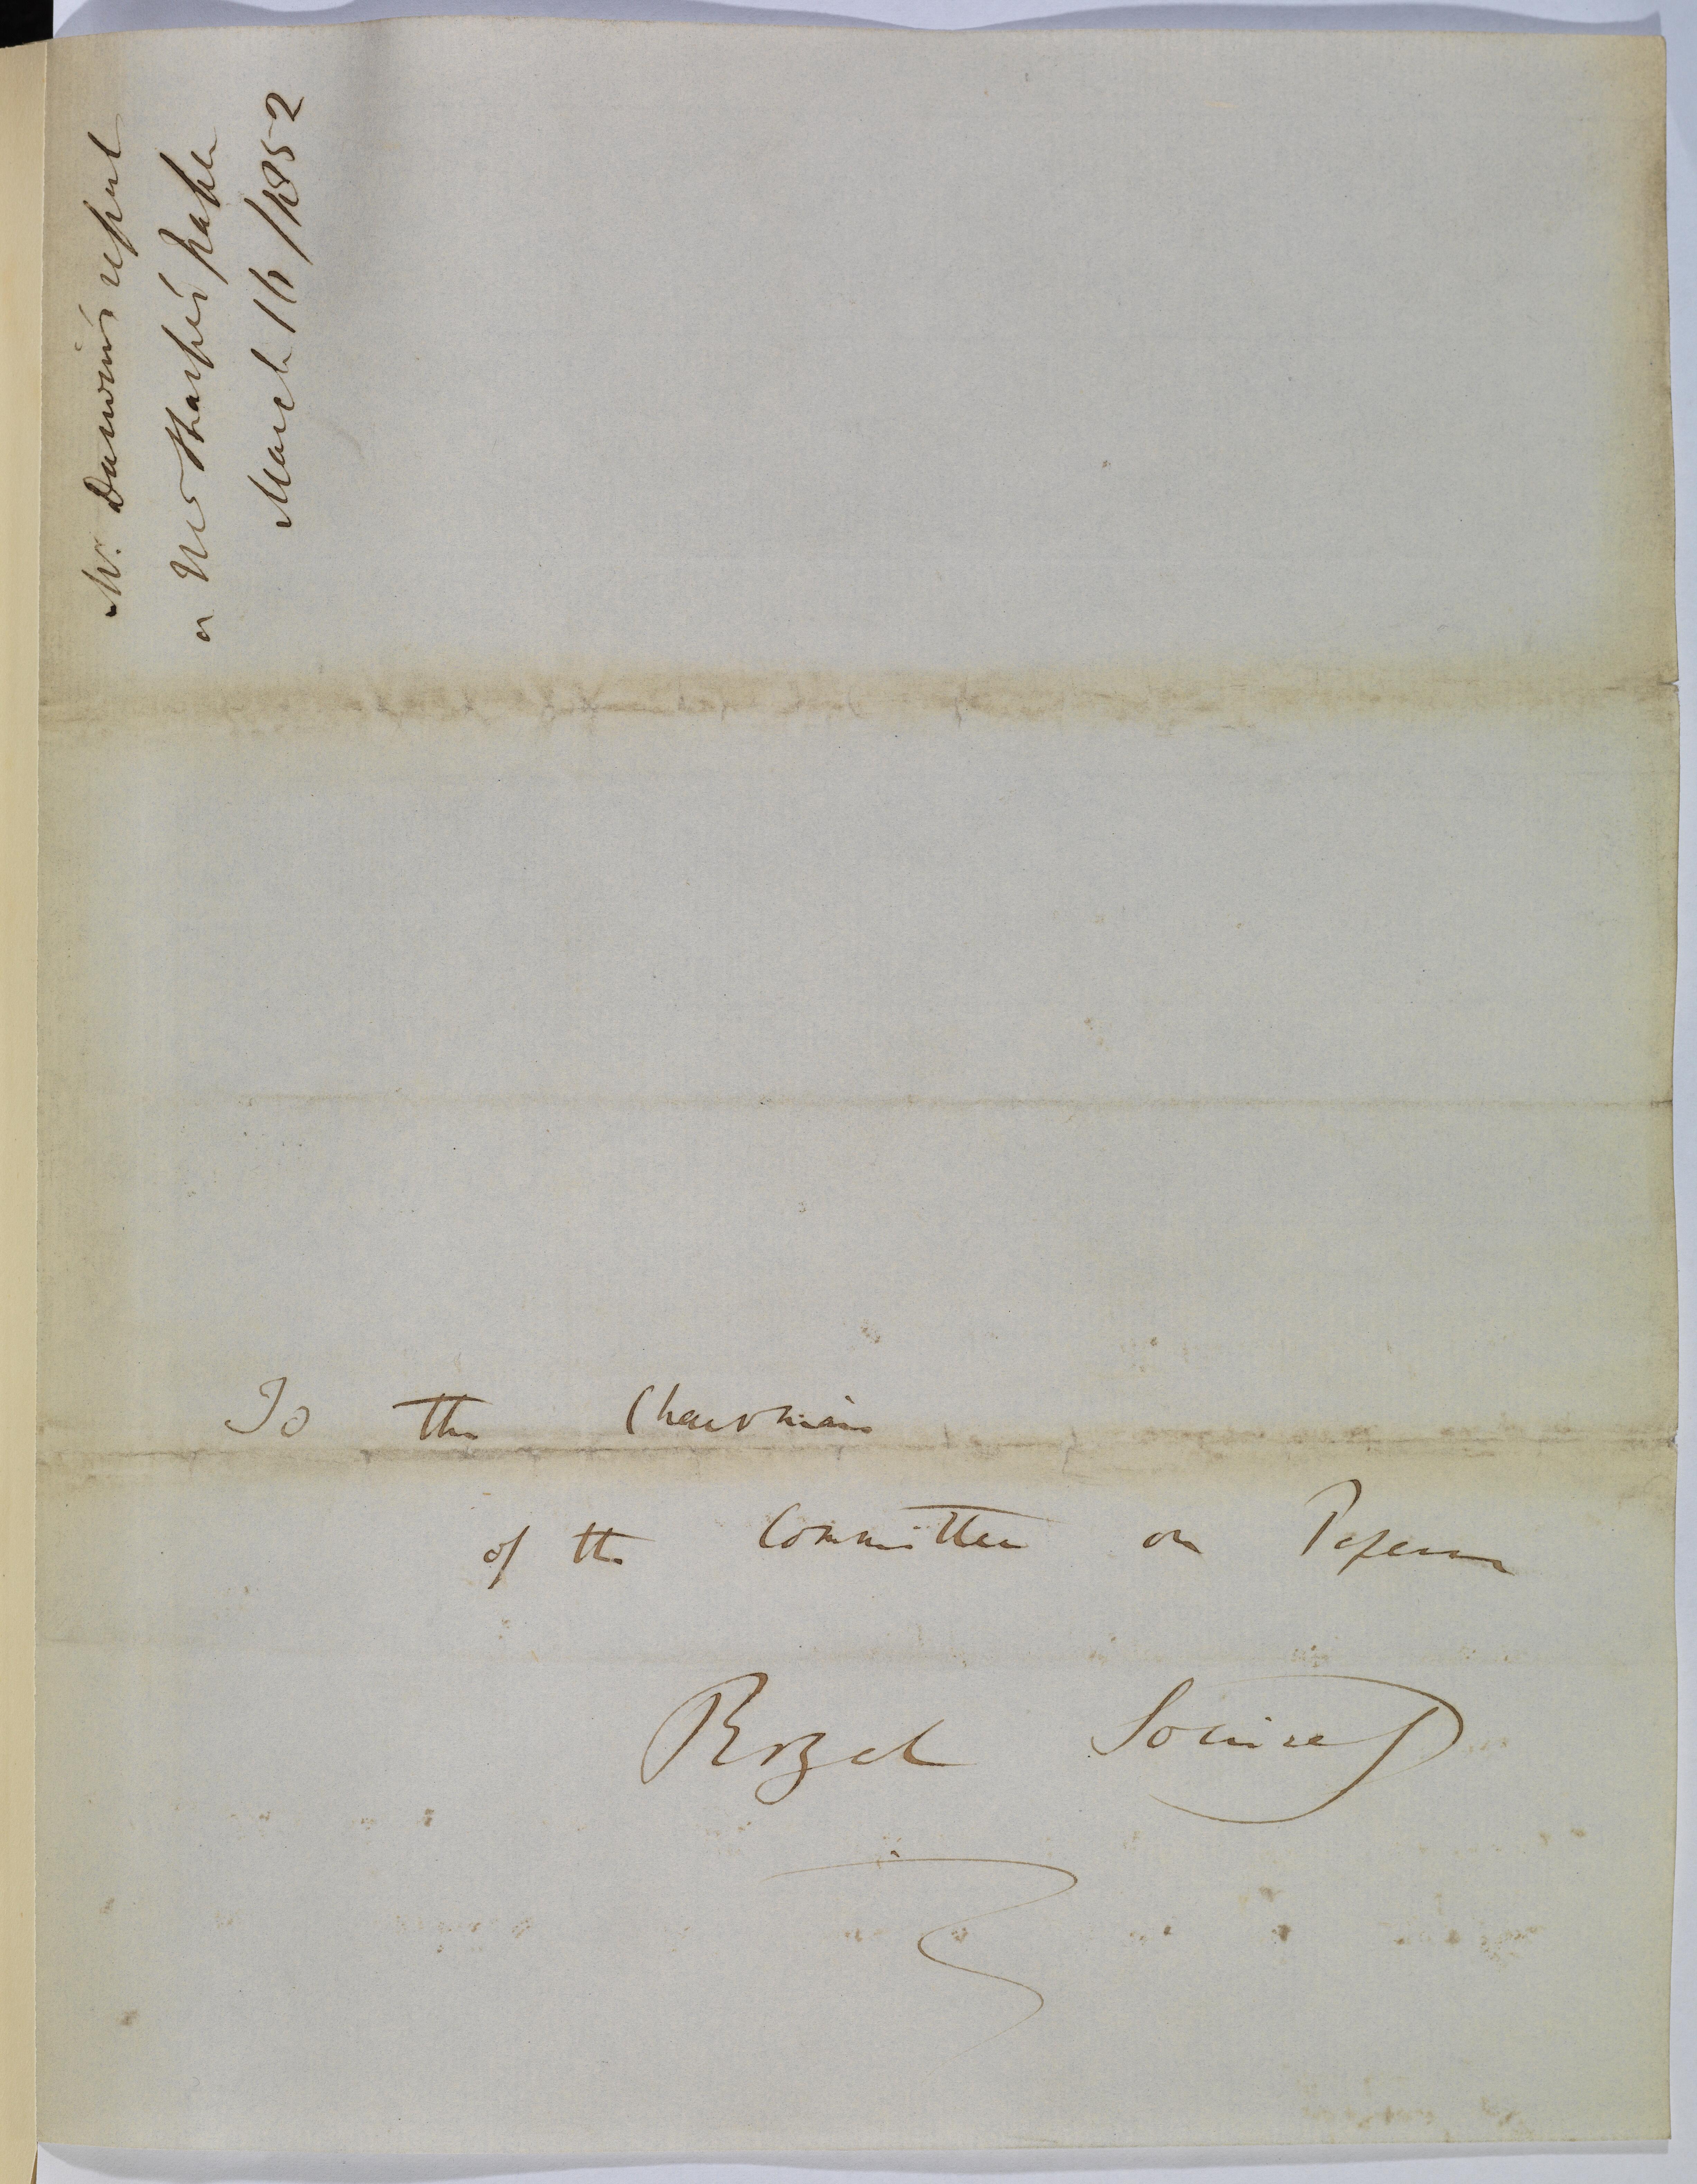 Mr. Darwin's report
on Mr Sharpe's paper
March 16/1852
To the Chairman
of the Committee on Papers
Royal Society